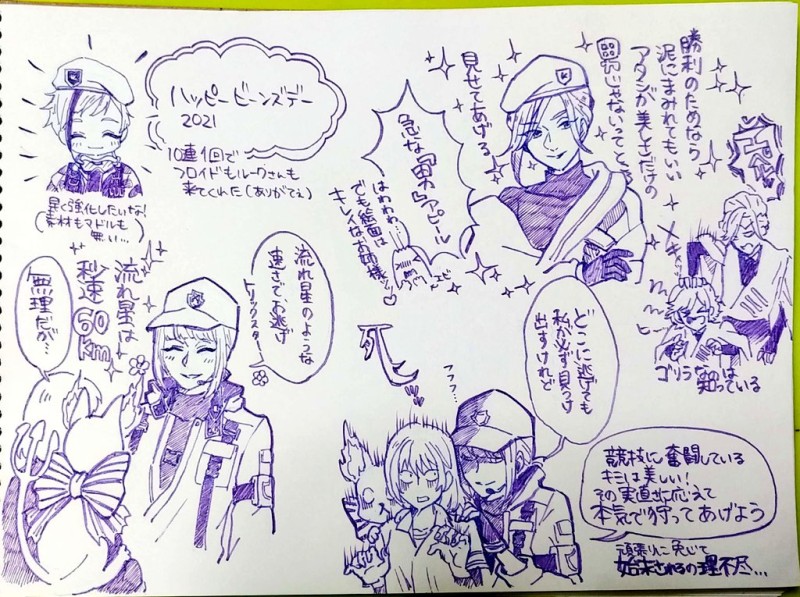 ハッピービーンズデー
2021
10連1回で
フロイドもルークさんも
来てくれた(ありがてぇ)
早く強化したいな!
(素材もマドルも
無い…)
勝利のためなら
泥にまみれてもいい
アタシが美しさだけの
男じゃないってことを
見せてあげる
急な「男」アピール
はわわわ…
でも絵面は
キレイなお姉様…
メキャッ
ゴリラなのは
知っている
流れ星のような
速さで、お逃げ
トリックスター
流れ星は
秒速60km
無理だが…
どこに逃げても
私が必ず見つけ
出すけれど
フフフ…
死
競技に奮闘している
キミは美しい!
その実直さに応えて
本気で狩ってあげよう
頑張りに免じて
始末されるの理不尽…